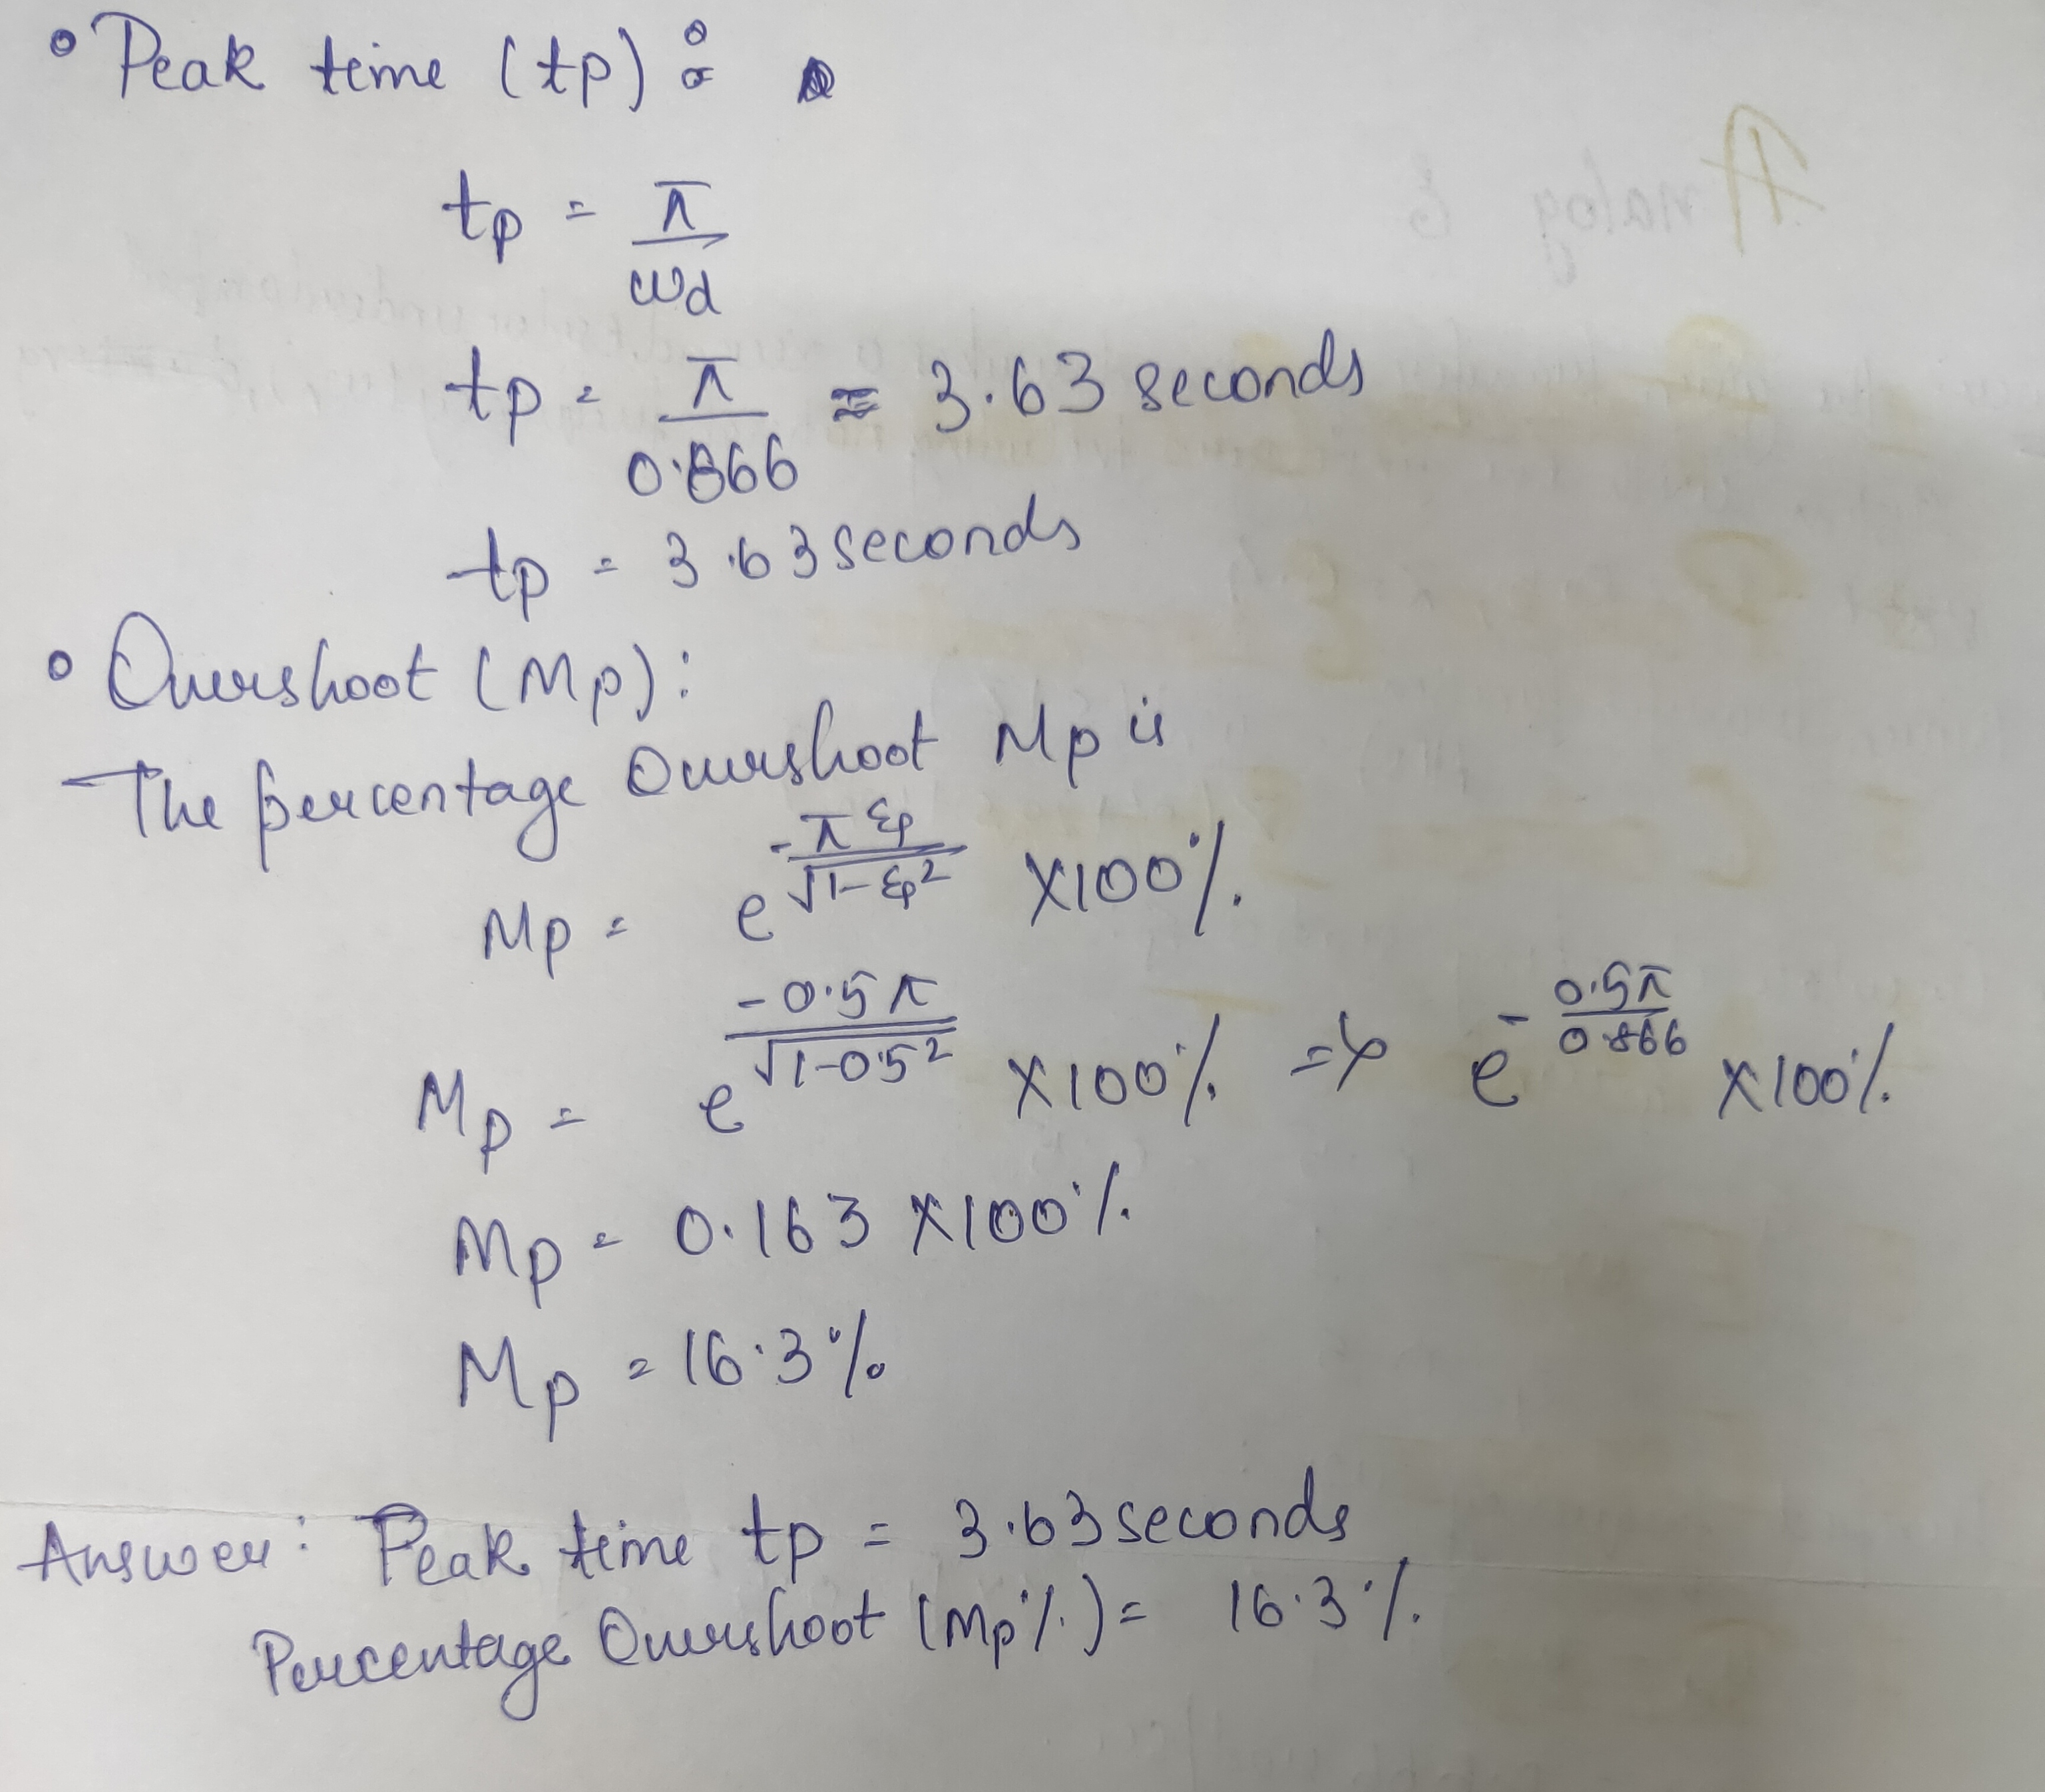 • Peak time (tp) :
tp = π/ωd
tp = π/0.866 ≈ 3.63 seconds
tp = 3.63 seconds
• Overshoot (Mp) :
The percentage Overshoot Mp is
Mp = e^(-πξ/√(1-ξ²)) X100%.
Mp = e^(-0.5π/√(1-0.5²)) X100% => e^(-0.5π/0.866) X100%.
Mp = 0.163 X100%.
Mp = 16.3%
Answer : Peak time tp = 3.63 seconds
Percentage Overshoot (Mp%) = 16.3%.